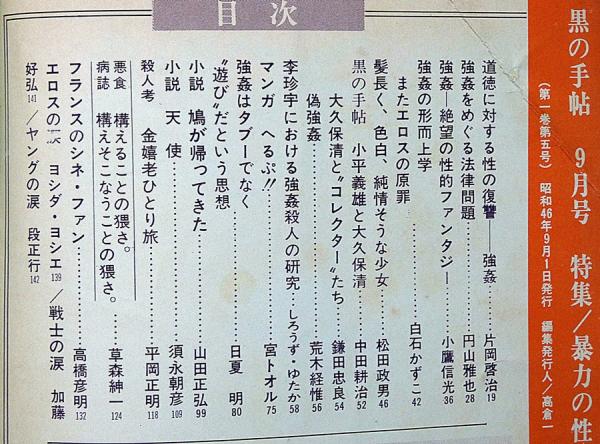 黒の手帖 9月号 特集/暴力の性
(第一巻第五号) 昭和46年9月1日発行 編集発行人/高倉一
目次
道徳に対する性の復讐――強姦……片岡啓治19
強姦をめぐる法律問題……円山雅也28
強姦―絶望の性的ファンタジー……小鷹信光36
強姦の形而上学
またエロスの原罪……白石かずこ42
髪長く、色白、純情そうな少女……松田政男46
黒の手帖 小平義雄と大久保清……中田耕治52
大久保清と“コレクター”たち……鎌田忠良54
偽強姦……荒木経惟56
李珍宇における強姦殺人の研究……しろうず・ゆたか58
マンガ へるぷ!!……宮トオル75
強姦はタブーでなく
“遊び”だという思想……日夏 明80
小説 鳩が帰ってきた……山田正弘99
小説 天使……須永朝彦109
殺人考 金嬉老ひとり旅……平岡正明118
悪食 構えることの猥さ。
病誌 構えそこなうことの猥さ。……草森紳一124
フランスのシネ・ファン……高橋彦明132
エロスの涙 ヨシダ・ヨシエ139/戦士の涙 加藤
好弘141/ヤングの涙 段正行142